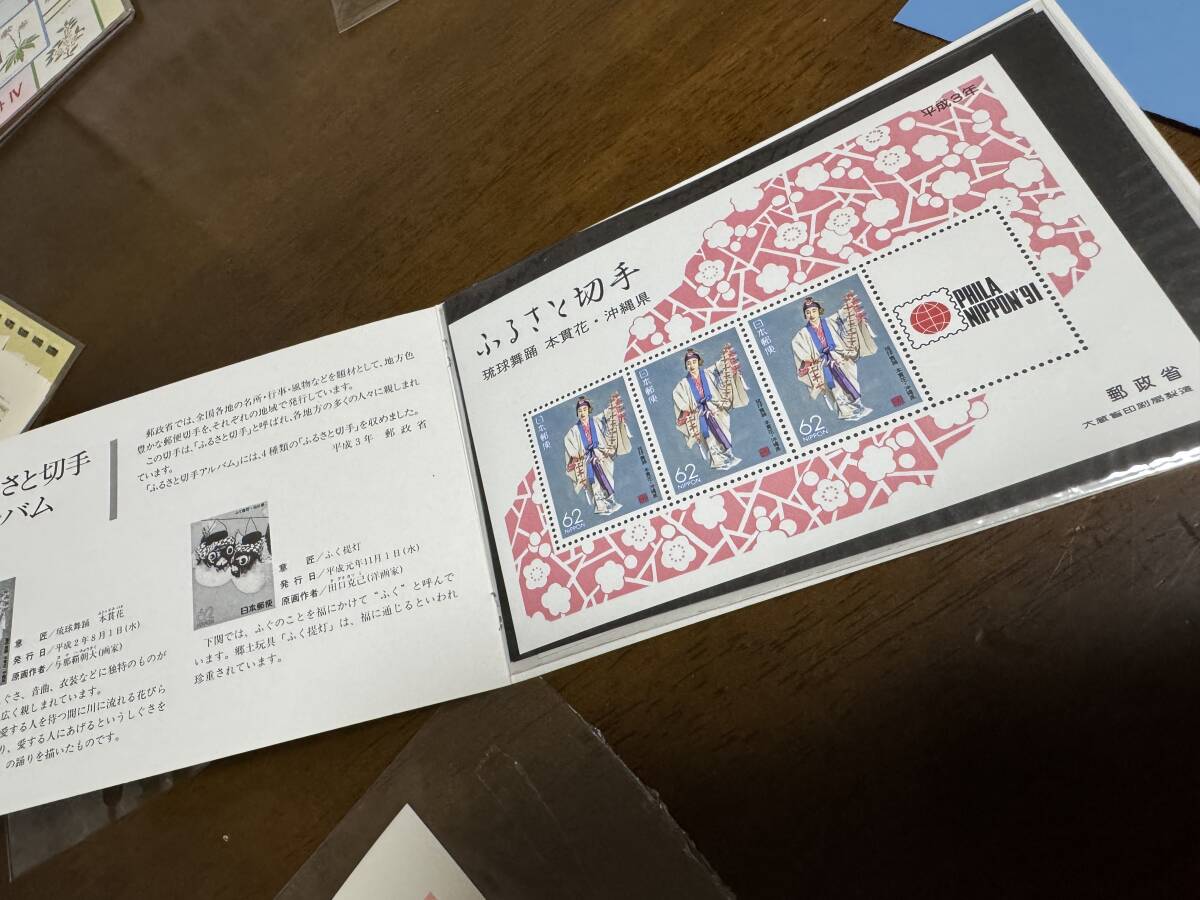 IV
さと切手
バム
郵政省では、全国各地の名所・行事・風物などを題材として、地方色
豊かな郵便切手を、それぞれの地域で発行しています。
この切手は、「ふるさと切手」と呼ばれ、各地方の多くの人々に親しまれ
ています。
「ふるさと切手アルバム」には、4種類の「ふるさと切手」を収めました。
平成3年 郵政省
62
日本郵便
意 匠/ふく提灯
発行日/平成元年11月1日(水)
原画作者/田口克己(洋画家)
下関では、ふぐのことを福にかけて“ふく”と呼んで
います。郷土玩具「ふく提灯」は、福に通じるといわれ
珍重されています。
意 匠/琉球舞踊 本貫花
発行日/平成2年8月1日(水)
原画作者/与那覇朝大(画家)
ぐさ、音曲、衣装などに独特のものが
広く親しまれています。
愛する人を待つ間に川に流れる花びら
り、愛する人にあげるというしぐさを
の踊りを描いたものです。
平成3年
ふるさと切手
琉球舞踊 本貫花・沖縄県
日本郵便
琉球舞踊 本貫花・沖縄県
62
NIPPON
日本郵便
琉球舞踊 本貫花・沖縄県
62
NIPPON
日本郵便
琉球舞踊 本貫花・沖縄県
62
NIPPON
PHILA
NIPPON'91
郵政省
大蔵省印刷局製造